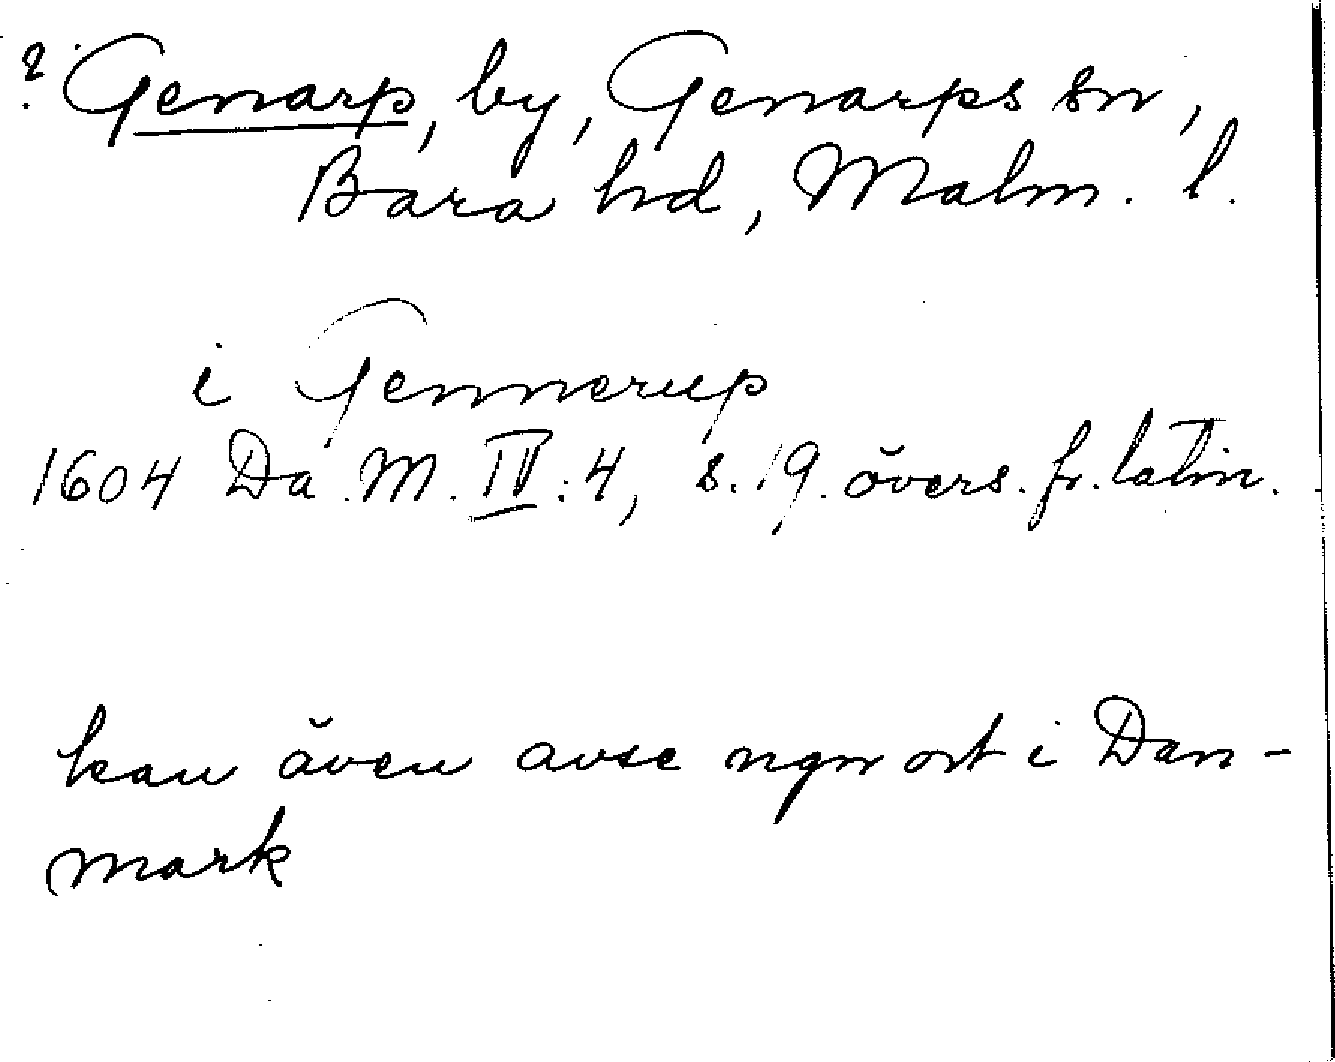 ? Genarp, by, Genarps sn,
Bara hd, Malm. l.
i Gennerup
1604 Da. M. IV:4, s. 19. övers. fr. latin.
kan även avse ngn ort i Dan-
mark